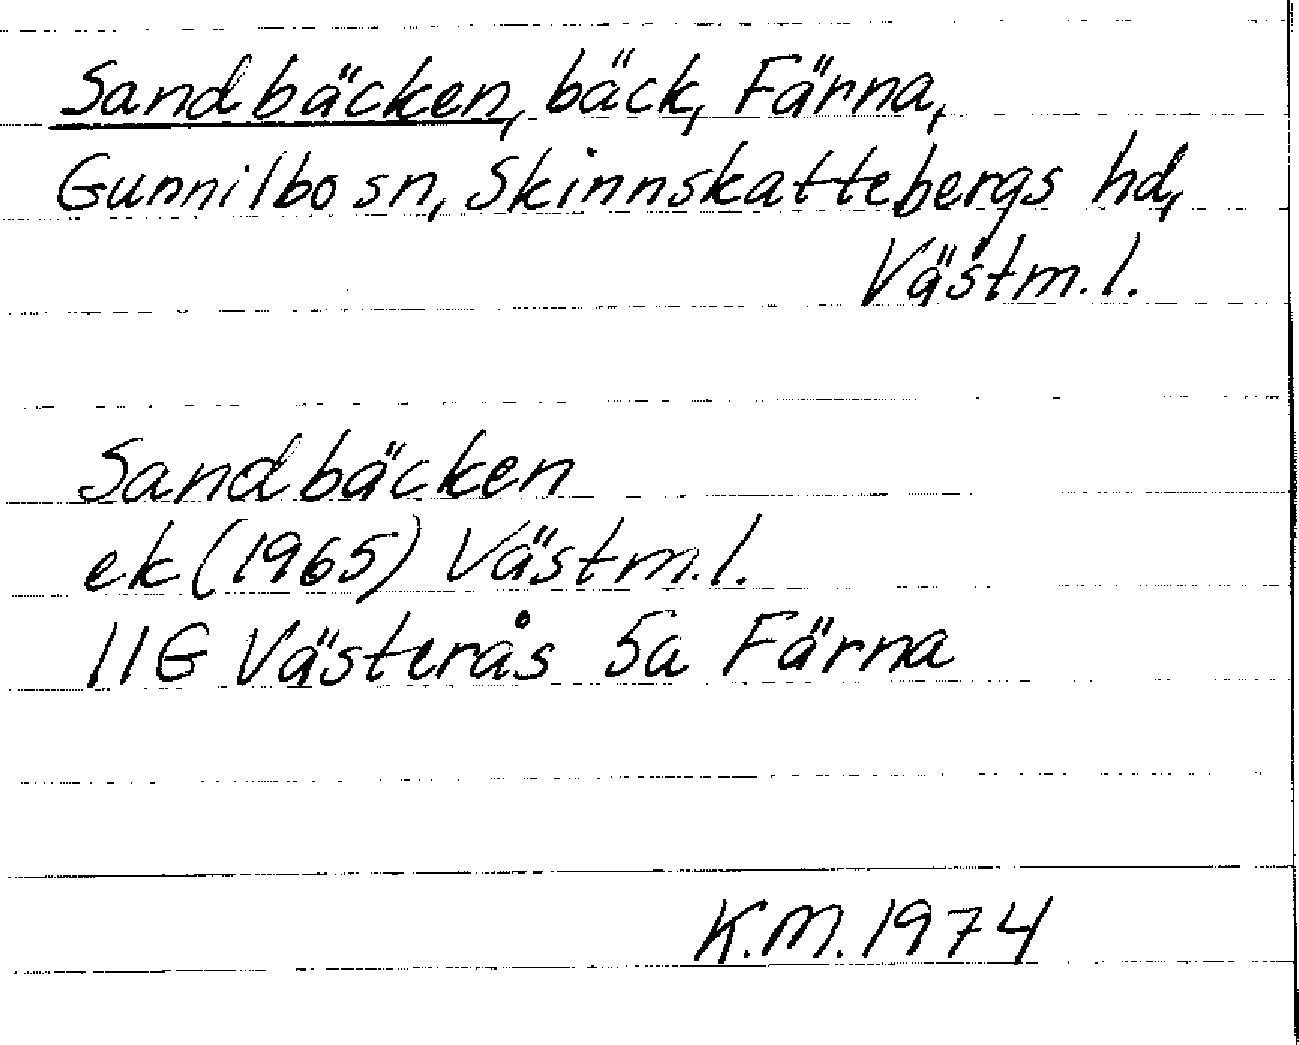 Sandbäcken, bäck, Färna,
Gunnilbo sn, Skinnskattebergs hd,
Västm.l.
Sandbäcken
ek (1965) Västm.l.
11G Västerås 5a Färna
K.M. 1974